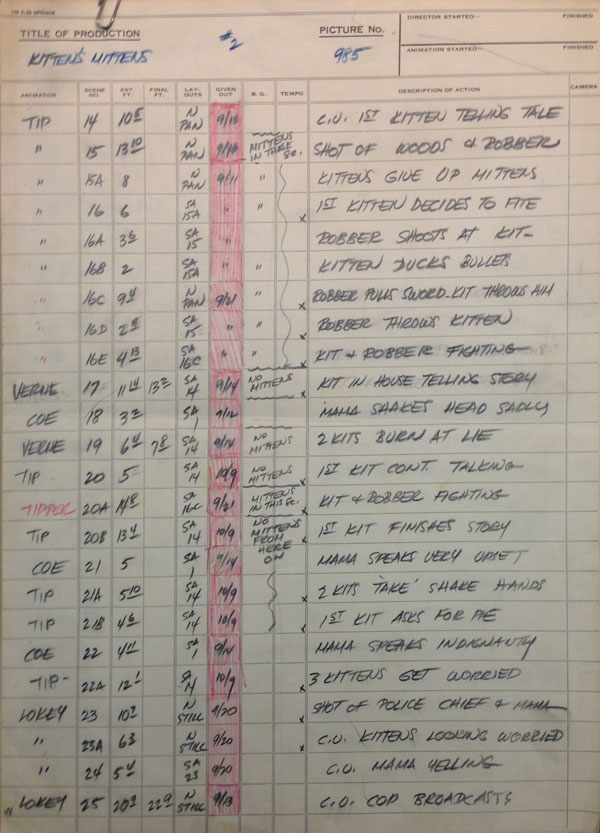 TITLE OF PRODUCTION #2 PICTURE No. DIRECTOR STARTED— FINISHED
KITTEN'S MITTENS 985 ANIMATION STARTED— FINISHED
ANIMATOR SCENE NO. EST. FT. FINAL FT. LAY-OUTS GIVEN OUT B.G. TEMPO DESCRIPTION OF ACTION CAMERA
TIP 14 N PAN C.U. 1ST KITTEN TELLING TALE
" 15 13 10 MITTENS IN THESE SC. SHOT OF WOODS & ROBBER
" 15A 8 N PAN 9/11 " KITTENS GIVE UP MITTENS
" 16 6 SA 15A " " 1ST KITTEN DECIDES TO FITE
" 16A SA 15 " ROBBER SHOOTS AT KIT—
" 16B 2 SA 15A " KITTEN DUCKS BULLETS
" 16C N PAN 9/21 " X ROBBER PULLS SWORD-KIT THROWS HIM
" 16D SA 15 " X ROBBER THROWS KITTEN
" 16E 4 13 SA 16C " " X KIT & ROBBER FIGHTING
VERNE 17 SA 14 9/14 NO MITTENS KIT IN HOUSE TELLING STORY
COE 18 SA 1 9/12 MAMA SHAKES HEAD SADLY
VERNE 19 SA 14 9/14 NO MITTENS 2 KITS BURN AT LIE
TIP 20 5 SA 14 10/9 NO MITTENS 1ST KIT CONT. TALKING
TIPPER 20A SA 16C 9/21 MITTENS IN THIS SC. KIT & ROBBER FIGHTING
TIP 20B SA 14 10/9 NO MITTENS FROM HERE ON 1ST KIT FINISHES STORY
COE 21 5 SA 1 9/14 MAMA SPEAKS VERY UPSET
TIP 21A 5 10 SA 14 10/9 X 2 KITS 'TAKE' SHAKE HANDS
TIP 21B SA 14 10/9 X 1ST KIT ASKS FOR PIE
COE 22 SA 1 9/14 MAMA SPEAKS INDIGNANTY
TIP- 22A 12 1 10/9 X 3 KITTENS GET WORRIED
LOKEY 23 N STILL 9/20 X SHOT OF POLICE CHIEF & MAMA
" 23A 6 3 N STILL 9/20 X C.U. KITTENS LOOKING WORRIED
" 24 5 4 SA 23 9/20 C.U. MAMA YELLING
LOKEY 25 N STILL 9/13 C.U. COP BROADCASTS